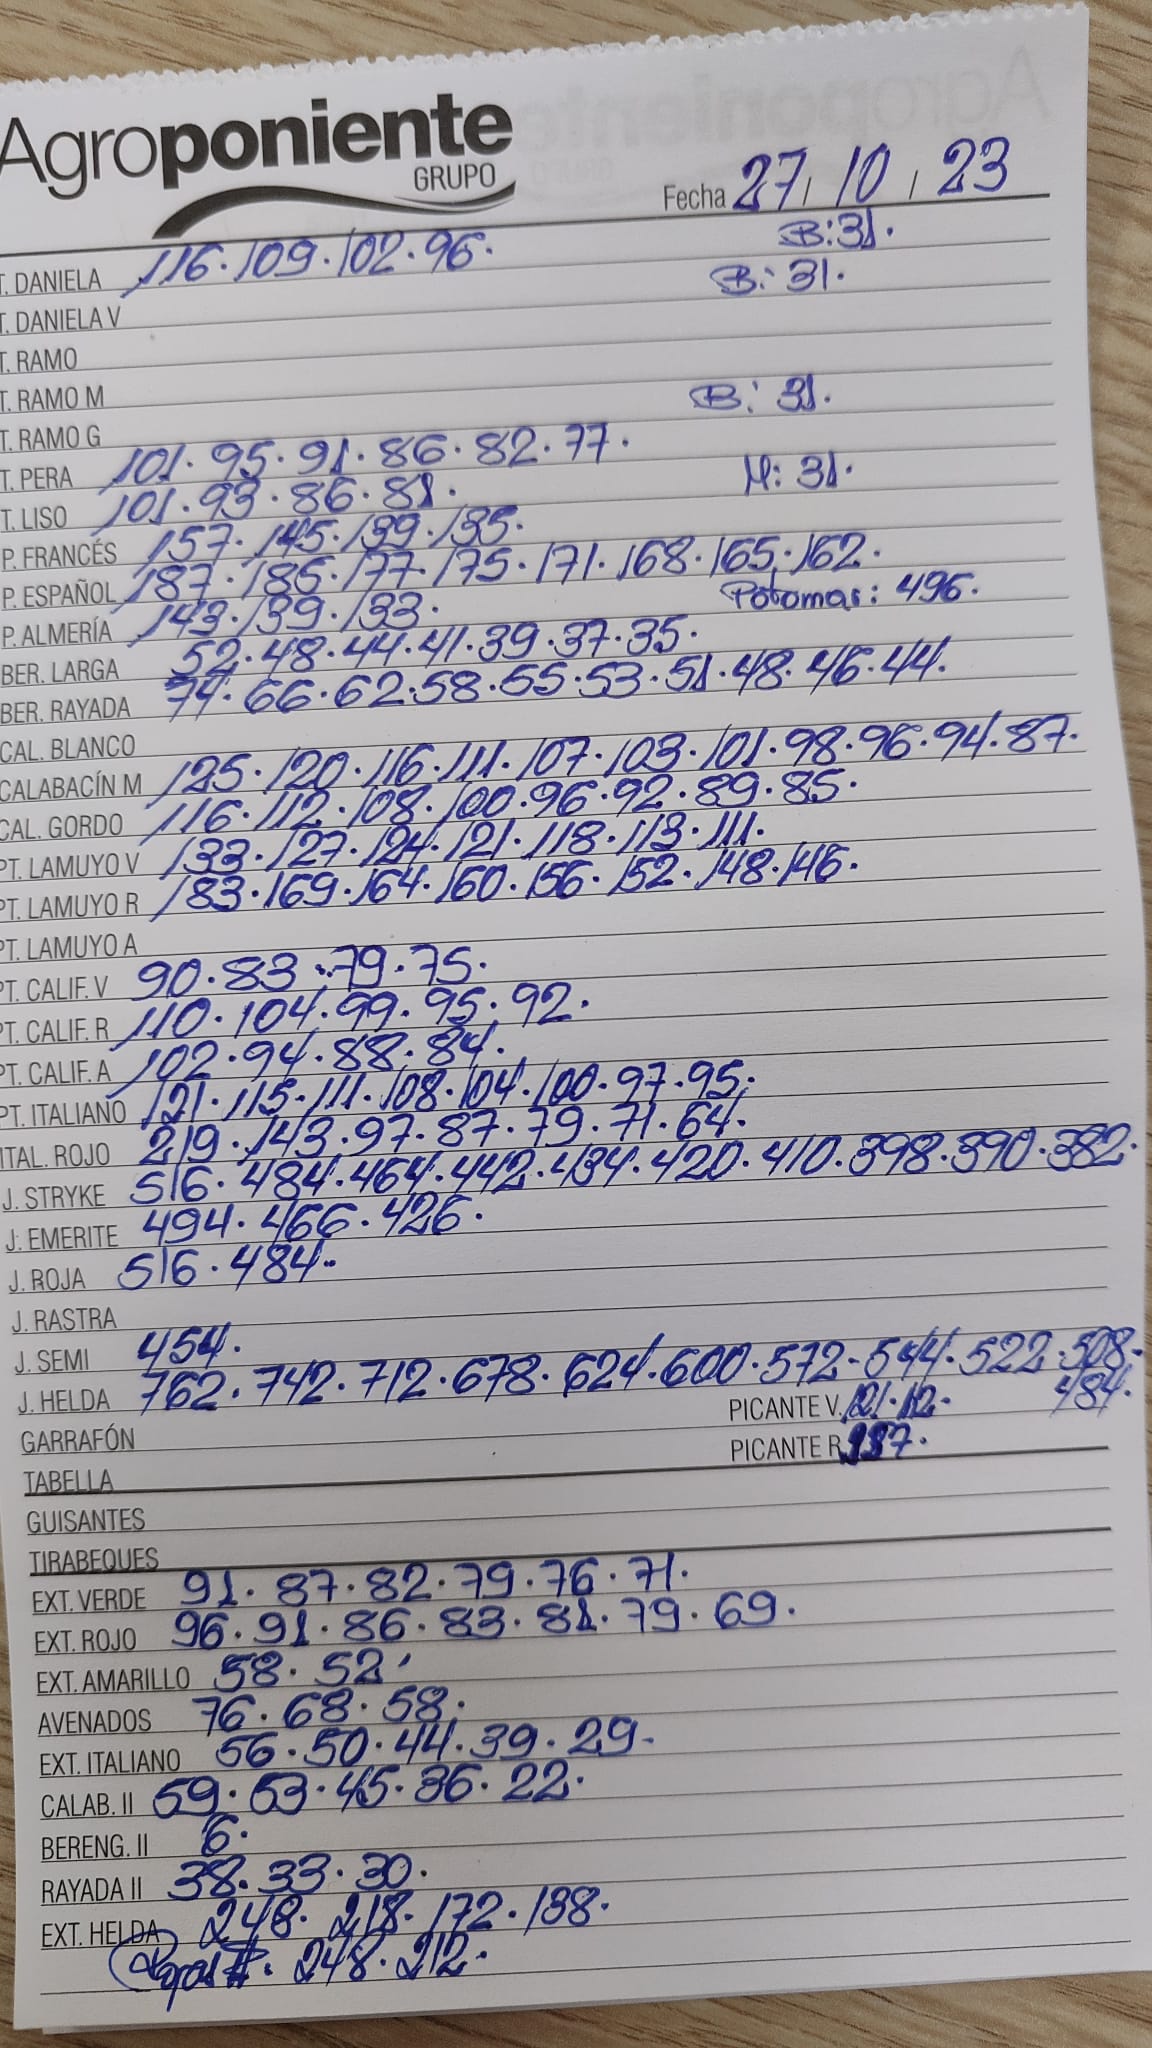 Agroponiente
GRUPO
Fecha 27 / 10 / 23
B: 31.
T. DANIELA 116. 109. 102. 96.
B: 31.
T. DANIELA V
T. RAMO
T. RAMO M
B: 31.
T. RAMO G
T. PERA 101. 95. 91. 86. 82. 77.
M: 31.
T. LISO 101. 93. 86. 81.
P. FRANCÉS 157. 145. 139. 135.
P. ESPAÑOL 187. 185. 177. 175. 171. 168. 165. 162.
P. ALMERÍA 143. 139. 133. Potomar: 496.
BER. LARGA 52. 48. 44. 41. 39. 37. 35.
BER. RAYADA 74. 66. 62. 58. 55. 53. 51. 48. 46. 44.
CAL. BLANCO
CALABACÍN M 125. 120. 116. 111. 107. 103. 101. 98. 96. 94. 87.
CAL. GORDO 116. 112. 108. 100. 96. 92. 89. 85.
PT. LAMUYO V 133. 127. 124. 121. 118. 113. 111.
PT. LAMUYO R 183. 169. 164. 160. 156. 152. 148. 146.
PT. LAMUYO A
PT. CALIF. V 90. 83. 79. 75.
PT. CALIF. R 110. 104. 99. 95. 92.
PT. CALIF. A 102. 94. 88. 84.
PT. ITALIANO 121. 115. 111. 108. 104. 100. 97. 95.
ITAL. ROJO 219. 143. 97. 87. 79. 71. 64.
J. STRYKE 516. 484. 464. 442. 434. 420. 410. 398. 390. 382.
J. EMERITE 494. 466. 426.
J. ROJA 516. 484.
J. RASTRA
J. SEMI 454.
J. HELDA 762. 742. 712. 678. 624. 600. 572. 544. 522. 508.
PICANTE V. 121. 12. 484.
GARRAFÓN
PICANTE R
TABELLA
GUISANTES
TIRABEQUES
EXT. VERDE 91. 87. 82. 79. 76. 71.
EXT. ROJO 96. 91. 86. 83. 81. 79. 69.
EXT. AMARILLO 58. 52.
AVENADOS 76. 68. 58.
EXT. ITALIANO 56. 50. 44. 39. 29.
CALAB. II 59. 53. 45. 36. 22.
BERENG. II 6.
RAYADA II 38. 33. 30.
EXT. HELDA 248. 218. 172. 138.
248. 212.